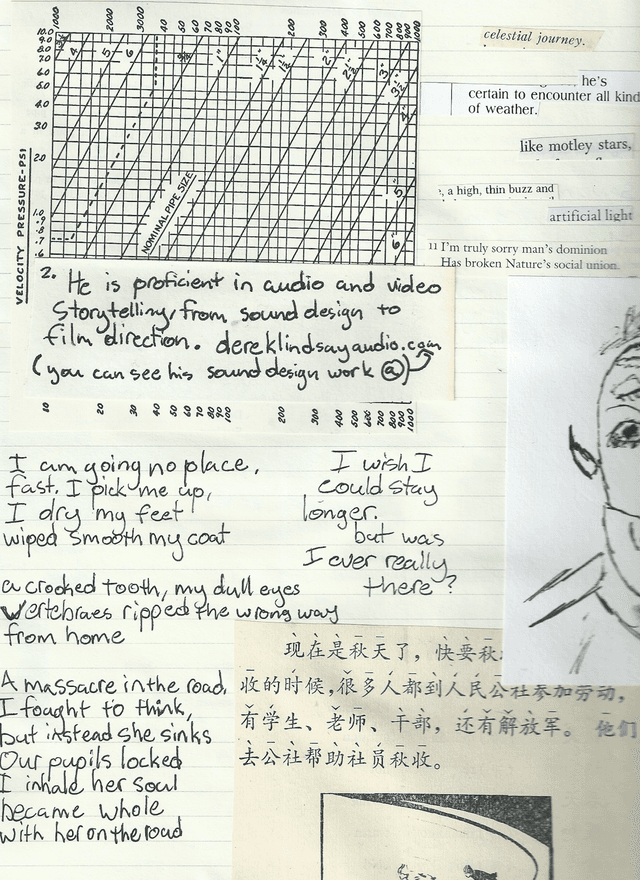 1000 2000 3000 40 50 60 70 80 90 100 200 300 400 500 600 700 800 900 1000
10.0
9.0
8.0
7.0
6.0
5.0
4.0
3.0
2.0
1.0
.9
.8
.7
.6
4 5 6 1" 2" 3" 4" 5" 6"
VELOCITY PRESSURE-PSI
NOMINAL PIPE SIZE
celestial journey.
he's
certain to encounter all kind
of weather.
like motley stars,
, a high, thin buzz and
artificial light
11 I'm truly sorry man's dominion
Has broken Nature's social union.
2. He is proficient in audio and video
storytelling, from sound design to
film direction. dereklindsayaudio.com
(you can see his sound design work @)
10 20 30 40 50 60 70 80 90 100 200 300 400 500 600 700 800 900 1000
I am going no place,
fast. I pick me up,
I dry my feet
wiped smooth my coat
a crooked tooth, my dull eyes
vertebraes ripped the wrong way
from home
A massacre in the road,
I fought to think,
but instead she sinks
Our pupils locked
I inhale her soul
became whole
with her on the road
I wish I
could stay
longer.
but was
I ever really
there?
现在是秋天了，快要秋
收的时候，很多人都到人民公社参加劳动，
有学生、老师、干部，还有解放军。他们
去公社帮助社员秋收。